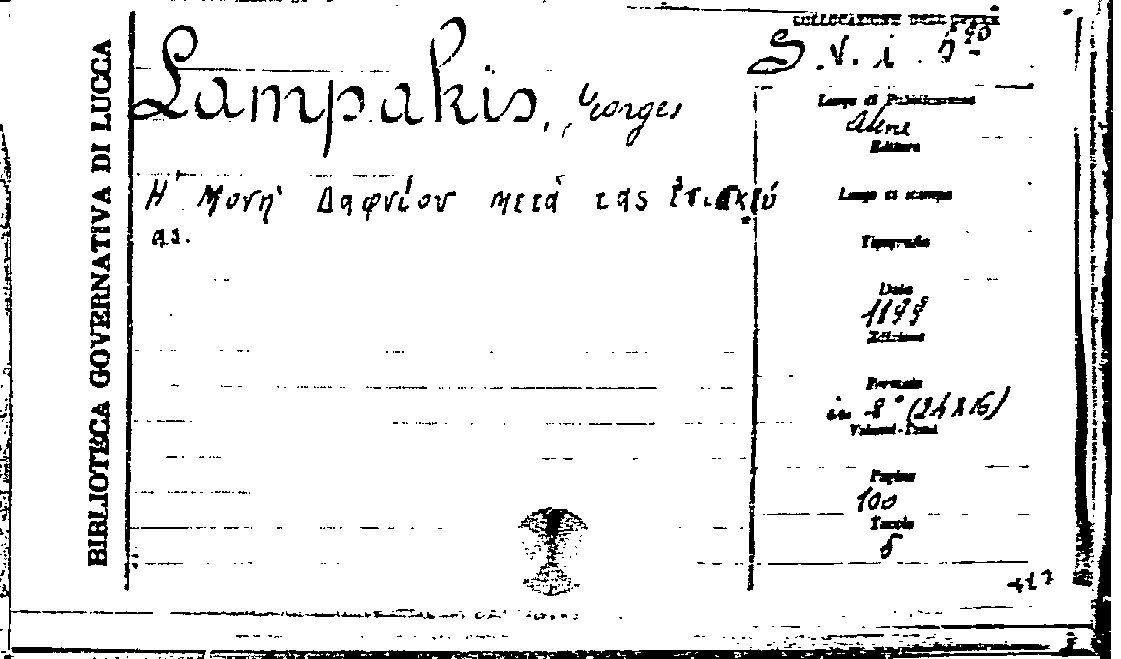 BIBLIOTECA GOVERNATIVA DI LUCCA
Lampakis, Georges
Ἡ Μονὴ Δαφνίου μετὰ τὰς ἐπισκευ
ας.
COLLOCAZIONE DELL'OPERA
S. v. i.
Luogo di Pubblicazione
Atene
Editore
Luogo di stampa
Tipografia
Data
1899
Edizione
Formato
in 8° (24X16)
Volumi-Tomi
Pagine
100
Tavole